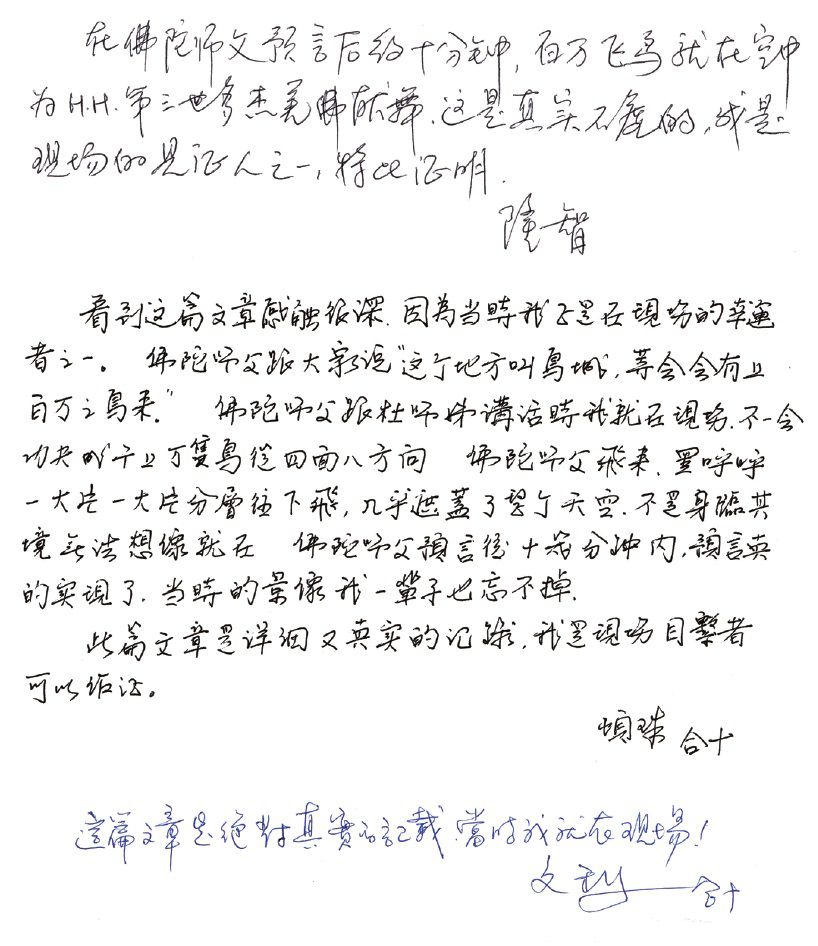 在佛陀师父预言后约十分钟，百万飞鸟就在空中
为H.H.第三世多杰羌佛献舞.这是真实不虚的,我是
现场的见证人之一,特此证明.
隆智
看到这篇文章感触很深.因為当時我也是在現场的幸運
者之一。佛陀师父跟大家说"这个地方叫鳥城,等会会有上
百万之鳥来."佛陀师父跟杜师姊講话時我就在現场.不一会
功夫成千上万隻鳥從四面八方向 佛陀师父飛来,黑呼呼
一大片一大片分層往下飛,几乎遮蓋了整个天空.不是身臨其
境無法想像就在 佛陀师父預言後十幾分钟内,預言真
的实現了.当時的景像我一輩子也忘不掉.
此篇文章是详细又真实的记録,我是現场目擊者
可以作证。
珠 合十
這篇文章是絕對真實的記載.當時我就在現場!
文 合十